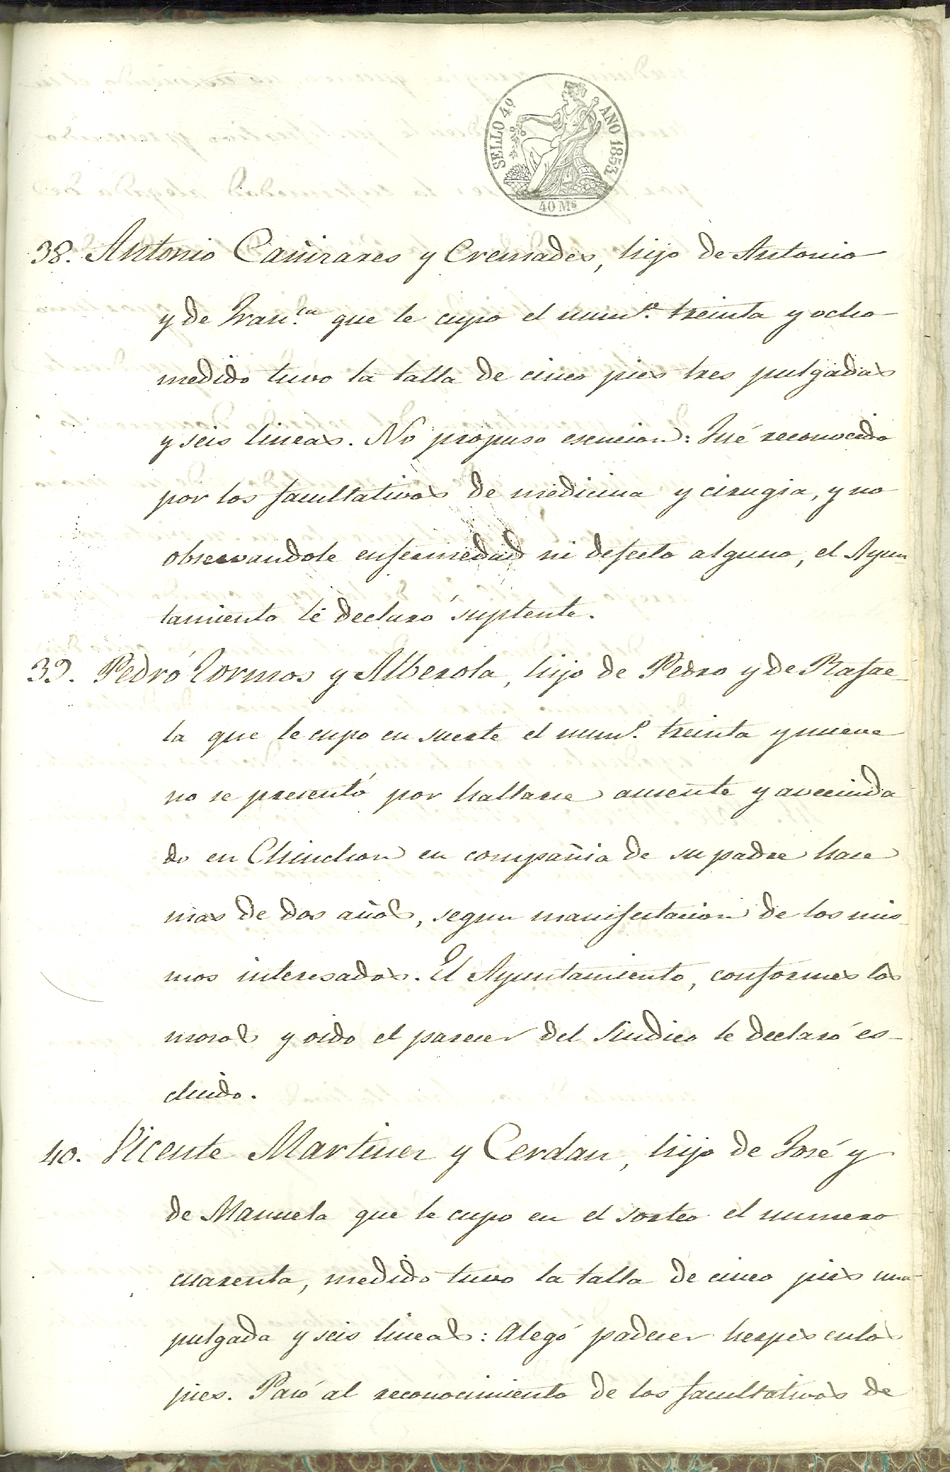 SELLO 4º AÑO 1853.
40 Ms
38. Antonio Cañizares y Cremades, hijo de Antonio
y de Fran.ca que le cupo el num.º treinta y ocho
medido tuvo la talla de cinco pies tres pulgadas
y seis lineas. No propuso esencion: Fué reconocido
por los facultativos de medicina y cirugia, y no
observandole enfermedad ni defecto alguno, el Ayun-
tamiento lé declaró suplente.
39. Pedro Tormos y Alberola, hijo de Pedro y de Rafae-
la que le cupo en suerte el num.º treinta y nueve
no se presentó por hallarse ausente y avecinda
do en Chinchon en compañia de su padre hace
mas de dos años, segun manifestacion de los mis-
mos interesados. El Ayuntamiento, conformes los
mosos y oido el parecer del Sindico le declaró es-
cluido.
40. Vicente Martinez y Cerdan, hijo de José y
de Manuela que le cupo en el sorteo el numero
cuarenta, medido tuvo la talla de cinco pies una
pulgada y seis lineas: Alegó padecer herpes en los
pies. Pasó al reconocimiento de los facultativos de